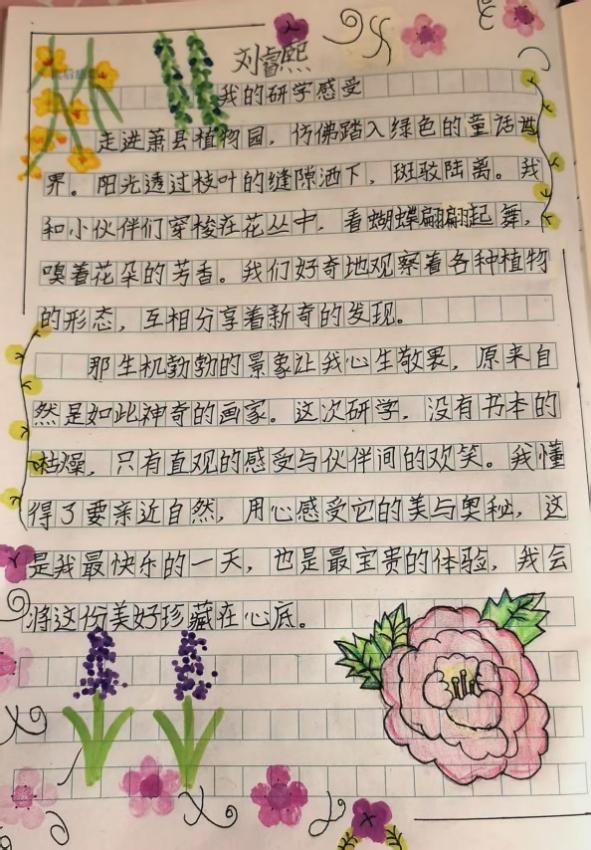 刘睿熙
我的研学感受
走进萧县植物园，仿佛踏入绿色的童话世
界。阳光透过枝叶的缝隙洒下，斑驳陆离。我
和小伙伴们穿梭在花丛中，看蝴蝶翩翩起舞，
嗅着花朵的芳香。我们好奇地观察着各种植物
的形态，互相分享着新奇的发现。
那生机勃勃的景象让我心生敬畏，原来自
然是如此神奇的画家。这次研学，没有书本的
枯燥，只有直观的感受与伙伴间的欢笑。我懂
得了要亲近自然，用心感受它的美与奥秘，这
是我最快乐的一天，也是最宝贵的体验，我会
将这份美好珍藏在心底。